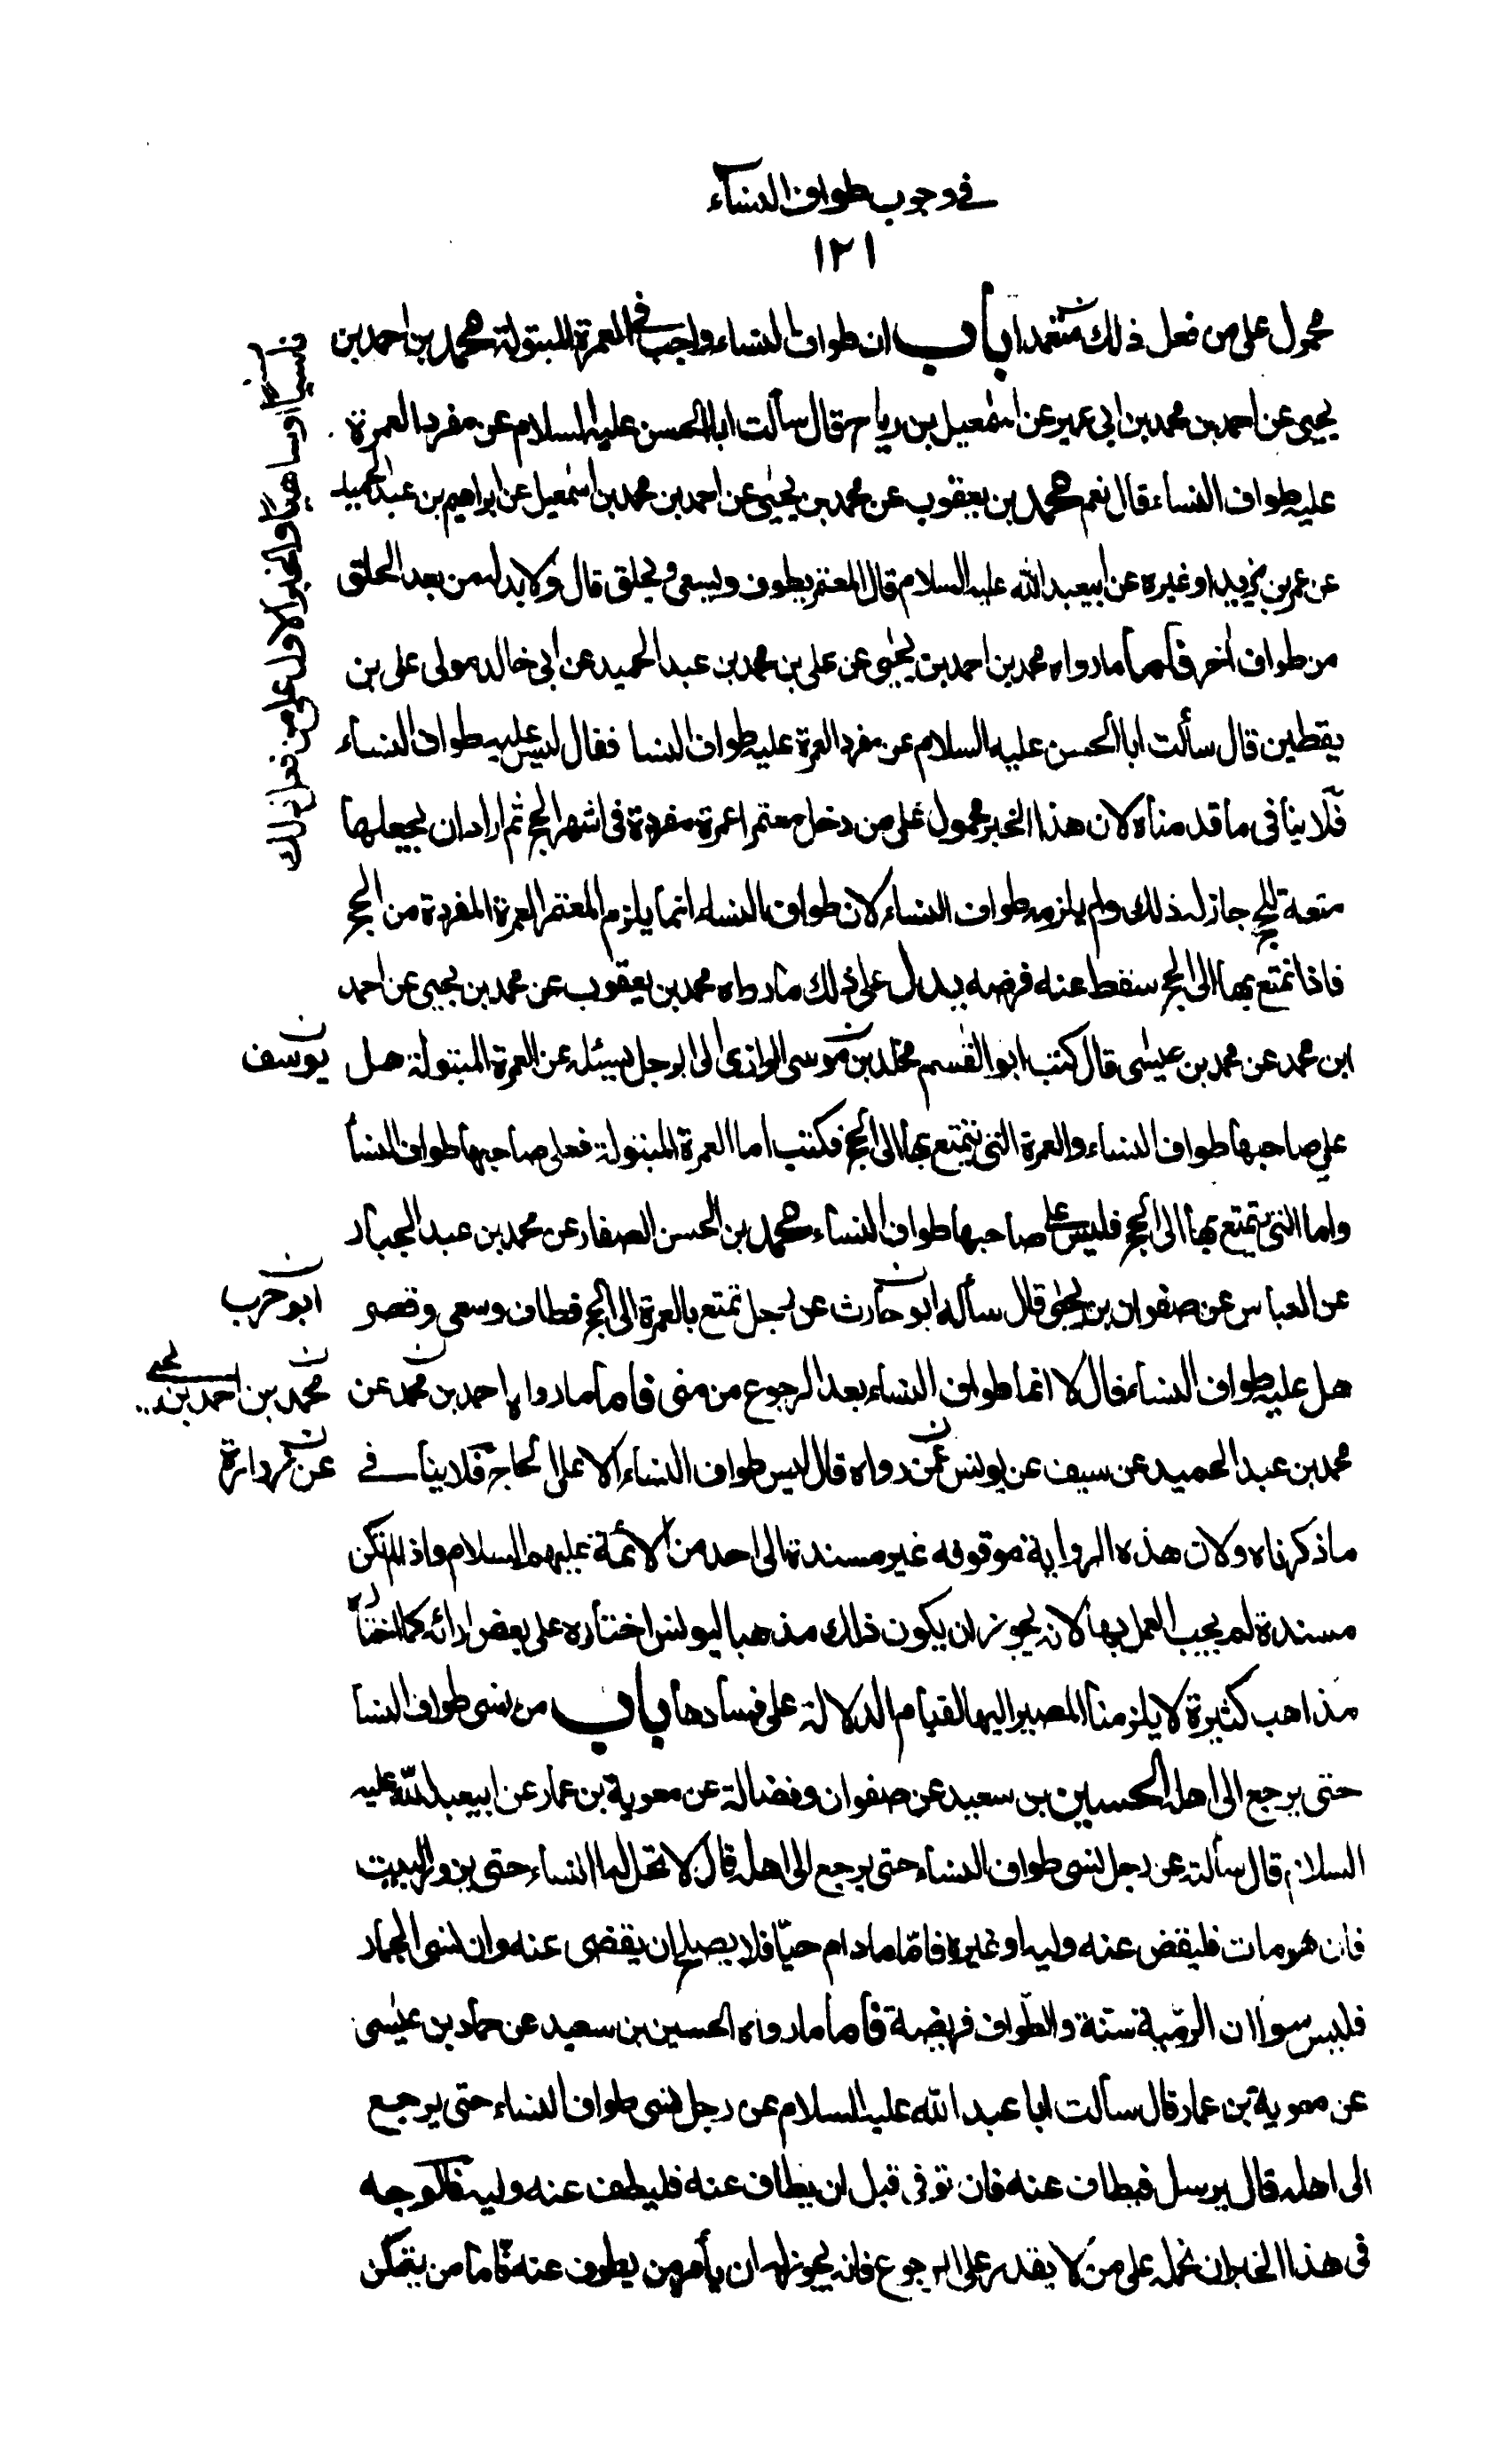 في وجوب طواف النساء
١٢١
محمول على من فعل ذلك متعمدا باب ان طواف النساء واجب في العمرة المبتولة محمد بن احمد بن
يحيى عن احمد بن محمد بن ابى عمير عن اسمعيل بن رياح قال سألت ابا الحسن عليه السلام عن مفرد العمرة
عليه طواف النساء قال نعم محمد بن يعقوب عن محمد بن يحيى عن احمد بن محمد بن اسمعيل عن ابراهيم بن عبد الحميد
عن عمر بن يزيد او غيره عن ابيعبد الله عليه السلام قال المعتمر يطوف ويسعى ويحلق قال ولا بد له من بعد الحلق
من طواف اخر فاما ما رواه محمد بن احمد بن يحيى عن على بن محمد بن عبد الحميد عن ابى خالد مولى على بن
يقطين قال سألت ابا الحسن عليه السلام عن مفرد العمرة عليه طواف النسا فقال ليس عليه طواف النساء
فلا ينافى ما قدمناه لان هذا الخبر محمول على من دخل معتمرا عمرة مفردة فى اشهر الحج ثم اراد ان يجعلها
متعة للحج جاز له ذلك ولم يلزمه طواف النساء لان طواف النساء انما يلزم المعتمر العمرة المفردة من الحج
فاذا تمتع بها الى الحج سقط عنه فرضه يدل على ذلك ما رواه محمد بن يعقوب عن محمد بن يحيى عن احمد
ابن محمد عن محمد بن عيسى قال كتب ابو القسم مخلد بن موسى الرازى الى الرجل يسئله عن العمرة المبتولة هل
على صاحبها طواف النساء والعمرة التى يتمتع بها الى الحج فكتب اما العمرة المبتولة فعلى صاحبها طواف النسأ
واما التى يتمتع بها الى الحج فليس على صاحبها طواف النساء محمد بن الحسن الصفار عن محمد بن عبد الجبار
عن العباس عن صفوان بن يحيى قال سأله ابو حارث عن رجل تمتع بالعمرة الى الحج فطاف وسعى وقصر
هل عليه طواف النساء قال لا انما طواف النساء بعد الرجوع من منى فاما ما رواه احمد بن محمد عن
محمد بن عبد الحميد عن سيف عن يونس عمن رواه قال ليس طواف النساء الا على الحاج فلا ينا فى
ما ذكرناه ولان هذه الرواية موقوفه غير مسندة الى احد من الائمة عليهم السلام واذا لم تكن
مسندة لم يجب العمل بها لانه يجوز ان يكون ذلك مذهبا ليونس اختاره على بعض ارائه كما اختاره
مذاهب كثيرة لا يلزمنا المصير اليها لقيام الدلالة على فسادها باب من نسى طواف النسا
حتى يرجع الى اهله الحسين بن سعيد عن صفوان وفضالة عن معوية بن عمار عن ابيعبد الله عليه
السلام قال سألته عن رجل نسى طواف النساء حتى يرجع الى اهله قال لا تحل له النساء حتى يزور البيت
فان هو مات فليقض عنه وليه او غيره فامّا ما دام حيّا فلا يصلح ان يقضى عنه وان نسى الجمار
فليس سواء ان الرّمية سنة والطّواف فريضة فاما ما رواه الحسين بن سعيد عن حماد بن عيسى
عن معوية بن عمار قال سألت ابا عبد الله عليه السلام عن رجل نسى طواف النساء حتى يرجع
الى اهله قال يرسل فيطاف عنه فان توفى قبل ان يطاف عنه فليطف عنه وليه فالوجه
فى هذا الخبر ان نحمله على من لا يقدر على الرجوع فانه يجوز له ان يأمر من يطوف عنه فاما من يتمكن
نسيا او ساهيا والخبر الاول على من فعل ذلك
يوسف
ابو حرب
محمد بن احمد بن يحيى
عن